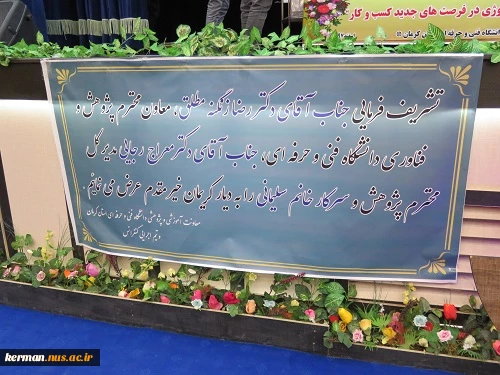 وزی در فرصت های جدید کسب و کار
تشریف فرمایی جناب آقای دکتر رضا زنگنه مطلق، معاون محترم پژوهش و
فناوری دانشگاه فنی و حرفه ای، جناب آقای دکتر معراج رجایی مدیر کل
محترم پژوهش و سرکار خانم سلیمانی را به دیار کریمان خیر مقدم عرض می نمائیم.
معاونت آموزشی و پژوهشی دانشگاه فنی و حرفه ای استان کرمان
و تیم اجرایی کنفرانس
kerman.nus.ac.ir